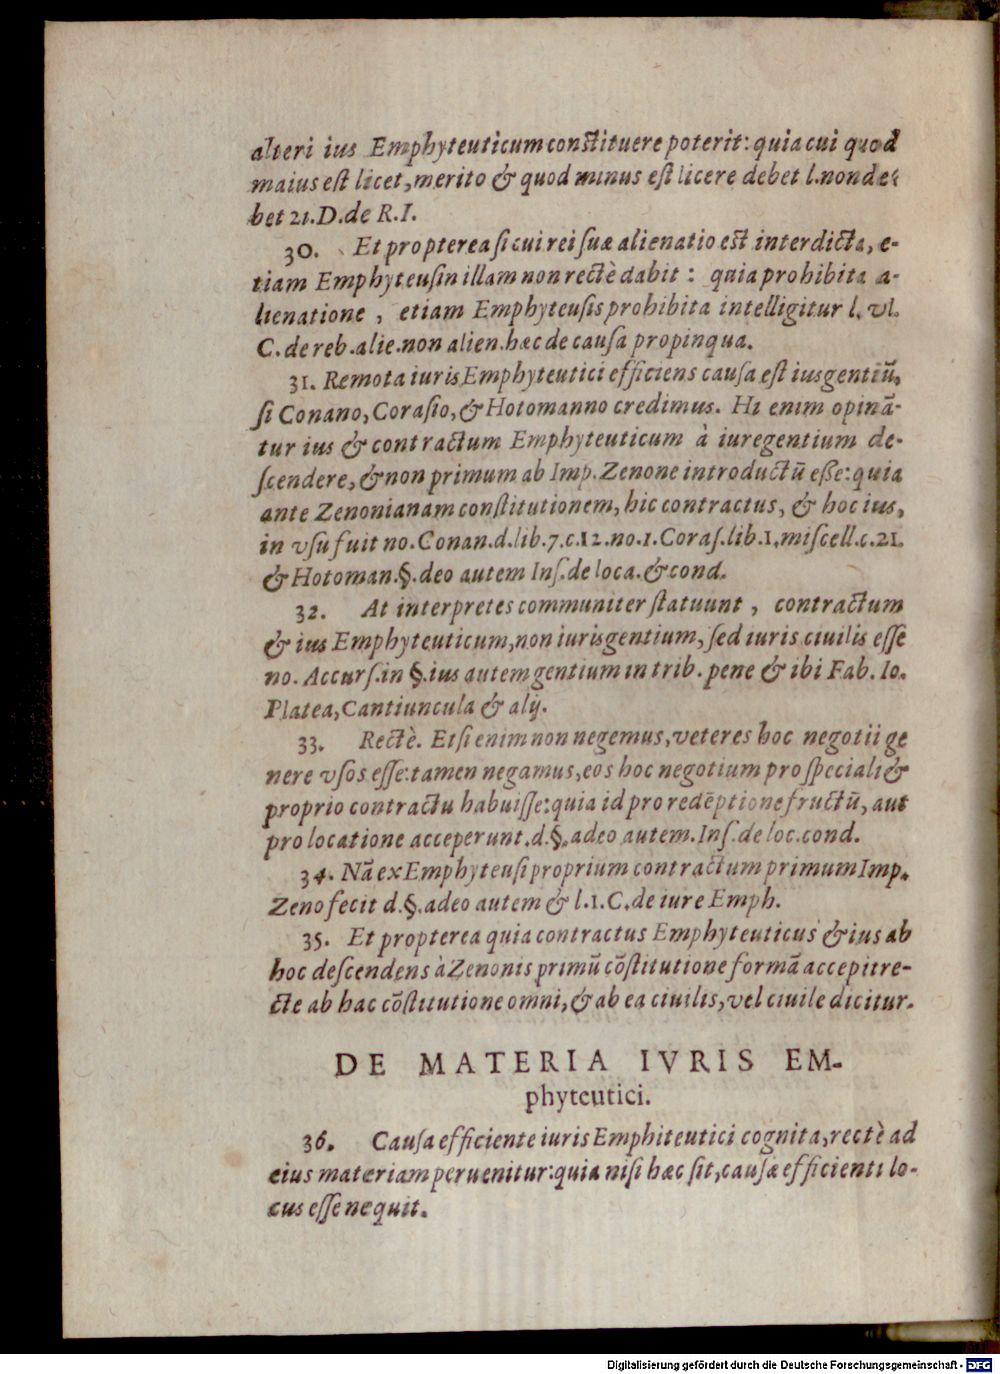 alteri ius Emphyteuticum constituere poterit: quia cui quod
maius est licet, merito & quod minus est licere debet l. non de-
bet 21. D. de R. I.
30. Et propterea si cui rei suæ alienatio est interdicta, e-
tiam Emphyteusin illam non rectè dabit : quia prohibita a-
lienatione , etiam Emphyteusis prohibita intelligitur l. vl.
C. de reb. alie. non alien. hæc de causa propinqua.
31. Remota iuris Emphyteutici efficiens causa est ius gentiū,
si Conano, Corasio, & Hotomanno credimus. Hi enim opinā-
tur ius & contractum Emphyteuticum à iure gentium de-
scendere, & non primum ab Imp. Zenone introductū esse: quia
ante Zenonianam constitutionem, hic contractus, & hoc ius,
in vsu fuit no. Conan. d. lib. 7. c. 12. no. 1. Coras. lib. 1. miscell. c. 21.
& Hotoman. §. deo autem Ins. de loca. & cond.
32. At interpretes communiter statuunt , contractum
& ius Emphyteuticum, non iuris gentium, sed iuris ciuilis esse
no. Accurs. in §. ius autem gentium in trib. pene & ibi Fab. Io.
Platea, Cantiuncula & alij.
33. Rectè. Etsi enim non negemus, veteres hoc negotii ge
nere vsos esse: tamen negamus, eos hoc negotium pro speciali &
proprio contractu habuisse: quia id pro redēptione fructū, aut
pro locatione acceperunt. d. §. adeo autem. Ins. de loc. cond.
34. Nā ex Emphyteusi proprium contractum primum Imp.
Zeno fecit d. §. adeo autem & l. 1. C. de iure Emph.
35. Et propterea quia contractus Emphyteuticus & ius ab
hoc descendens à Zenonis primū cōstitutione formā accepit re-
cte ab hac cōstitutione omni, & ab ea ciuilis, vel ciuile dicitur.
DE MATERIA IVRIS EM-
phyteutici.
36. Causa efficiente iuris Emphiteutici cognita, rectè ad
eius materiam peruenitur: quia nisi hæc sit, causæ efficienti lo-
cus esse nequit.
Digitalisierung gefördert durch die Deutsche Forschungsgemeinschaft - DFG